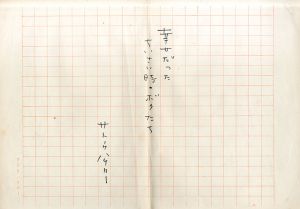 幸せだった
ちいさい時のボクたち
サトウハチロー